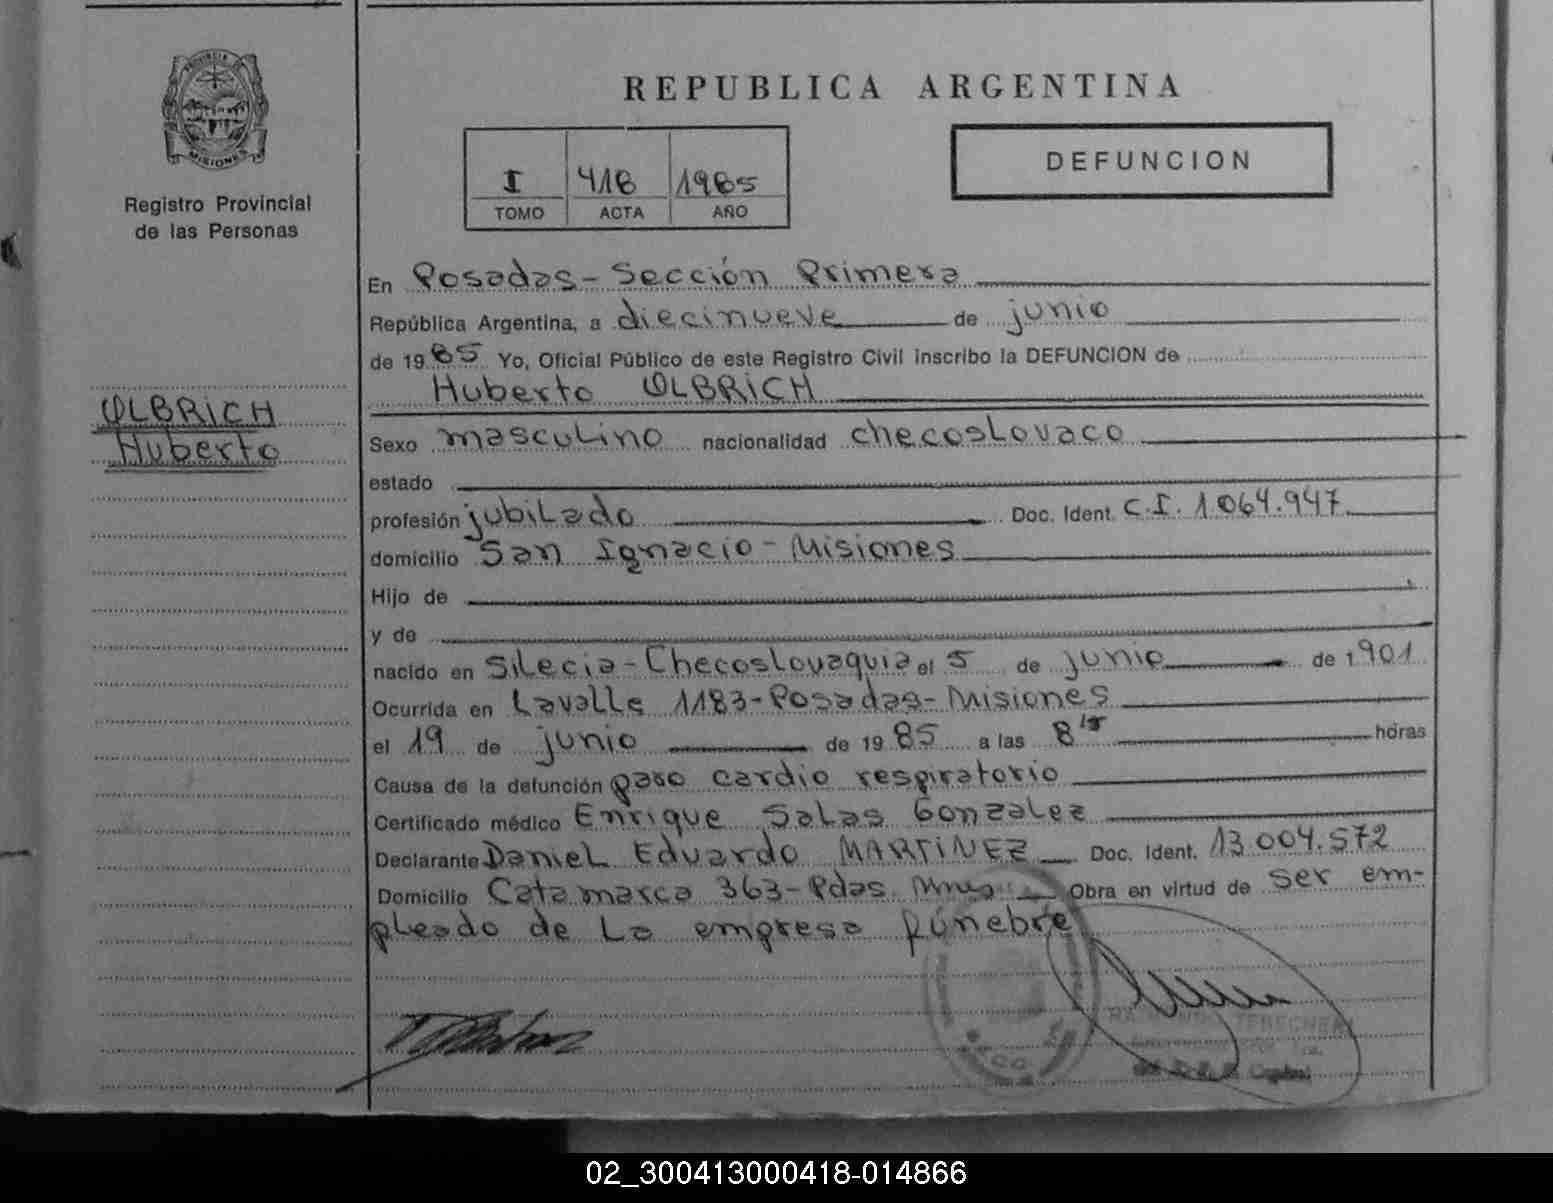 PROVINCIA DE
MISIONES
Registro Provincial
de las Personas
OLBRICH
Huberto
REPUBLICA ARGENTINA
I 418 1985
TOMO ACTA AÑO
DEFUNCION
En Posadas - Sección Primera
República Argentina, a diecinueve de junio
de 1985 Yo, Oficial Público de este Registro Civil inscribo la DEFUNCION de
Huberto OLBRICH
Sexo masculino nacionalidad checoslovaco
estado
profesión jubilado Doc. Ident. C.I. 1064.947
domicilio San Ignacio - Misiones
Hijo de
y de
nacido en Silecia - Checoslovaquia el 5 de junio de 1901
Ocurrida en Lavalle 1183 - Posadas - Misiones
el 19 de junio de 1985 a las 8 15 horas
Causa de la defunción paro cardio respiratorio
Certificado médico Enrique Salas Gonzalez
Declarante Daniel Eduardo MARTINEZ Doc. Ident. 13.004.572
Domicilio Catamarca 363 - Pdas. Mnes Obra en virtud de ser em-
pleado de la empresa fúnebre
02_300413000418-014866